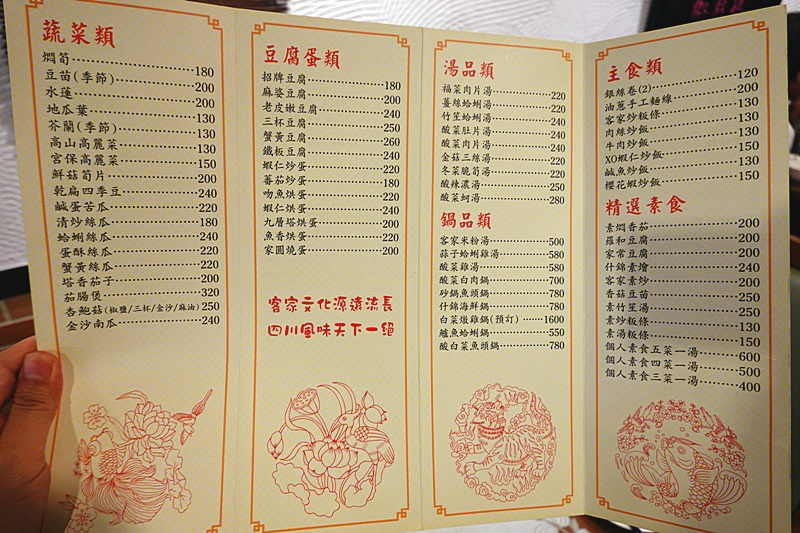 蔬菜類
燜筍 180
豆苗(季節) 200
水蓮 200
地瓜葉 130
芥蘭(季節) 130
高山高麗菜 130
宮保高麗菜 150
鮮菇筍片 200
乾扁四季豆 240
鹹蛋苦瓜 220
清炒絲瓜 180
蛤蜊絲瓜 240
蛋酥絲瓜 220
蟹黃絲瓜 220
塔香茄子 200
茄腸煲 320
杏鮑菇(椒鹽/三杯/金沙/麻油) 250
金沙南瓜 240
豆腐蛋類
招牌豆腐 180
麻婆豆腐 200
老皮嫩豆腐 240
三杯豆腐 250
蟹黃豆腐 260
鐵板豆腐 240
蝦仁炒蛋 220
蕃茄炒蛋 180
吻魚烘蛋 220
蝦仁烘蛋 240
九層塔烘蛋 200
魚香烘蛋 220
家圓燒蛋 200
客家文化源遠流長
四川風味天下一絕
湯品類
福菜肉片湯 220
薑絲蛤蜊湯 220
竹笙蛤蜊湯 240
酸菜肚片湯 240
酸菜肉片湯 240
金菇三絲湯 220
冬菜脆筍湯 220
酸辣濃湯 250
酸菜蚵湯 280
鍋品類
客家米粉湯 500
蒜子蛤蜊雞湯 580
酸菜雞湯 580
酸菜白肉鍋 700
砂鍋魚頭鍋 780
什錦海鮮鍋 780
白菜燉雞鍋(預訂) 1600
鱸魚蛤蜊鍋 550
酸白菜魚頭鍋 780
主食類
銀絲卷(2) 120
油蔥手工麵線 200
客家炒粄條 130
肉絲炒飯 130
牛肉炒飯 150
XO蝦仁炒飯 150
鹹魚炒飯 130
櫻花蝦炒飯 150
精選素食
素燜香茄 200
羅和豆腐 200
家常豆腐 200
什錦素燴 240
客家素炒 200
香菇豆苗 250
素竹笙湯 250
素炒粄條 130
素湯粄條 150
個人素食五菜一湯 600
個人素食四菜一湯 500
個人素食三菜一湯 400